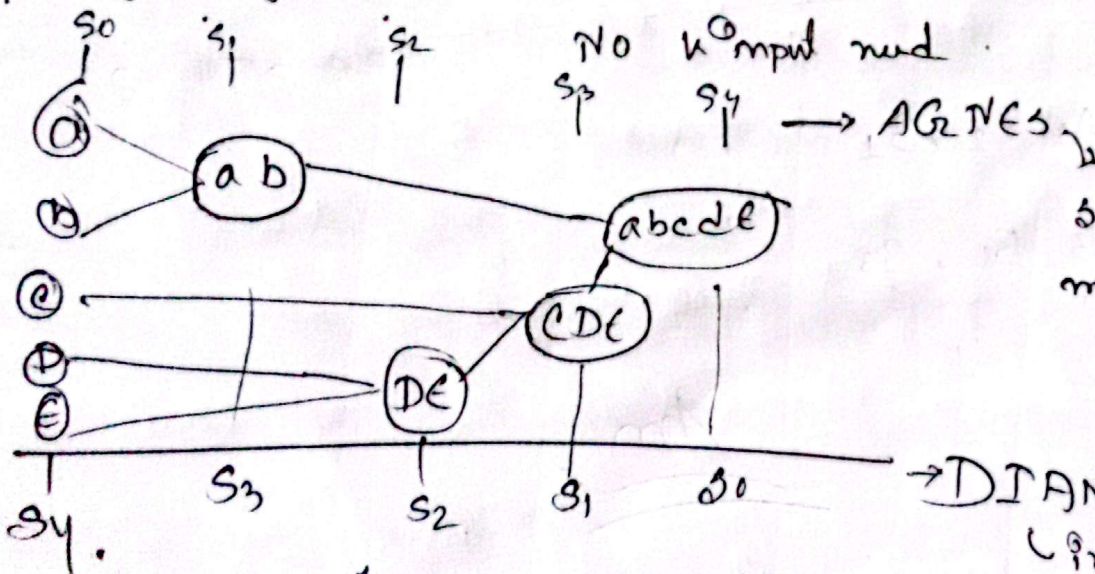 S0 S1 S2 No k input need.
S3 S4 → AGNES
a
a b
b
abcde
s
C
m
CDE
D
DE
E
S4 S3 S2 S1 S0 → DIAN
in